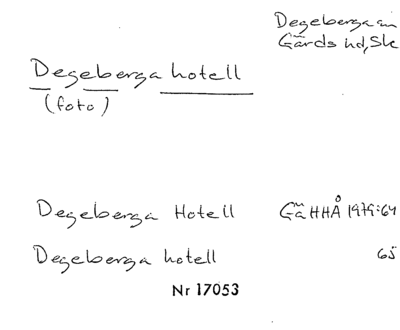 Degeberga sn
Gärds hd, Sk
Degeberga hotell
(foto)
Degeberga Hotell GäHHÅ 1979:64
Degeberga hotell 65
Nr 17053